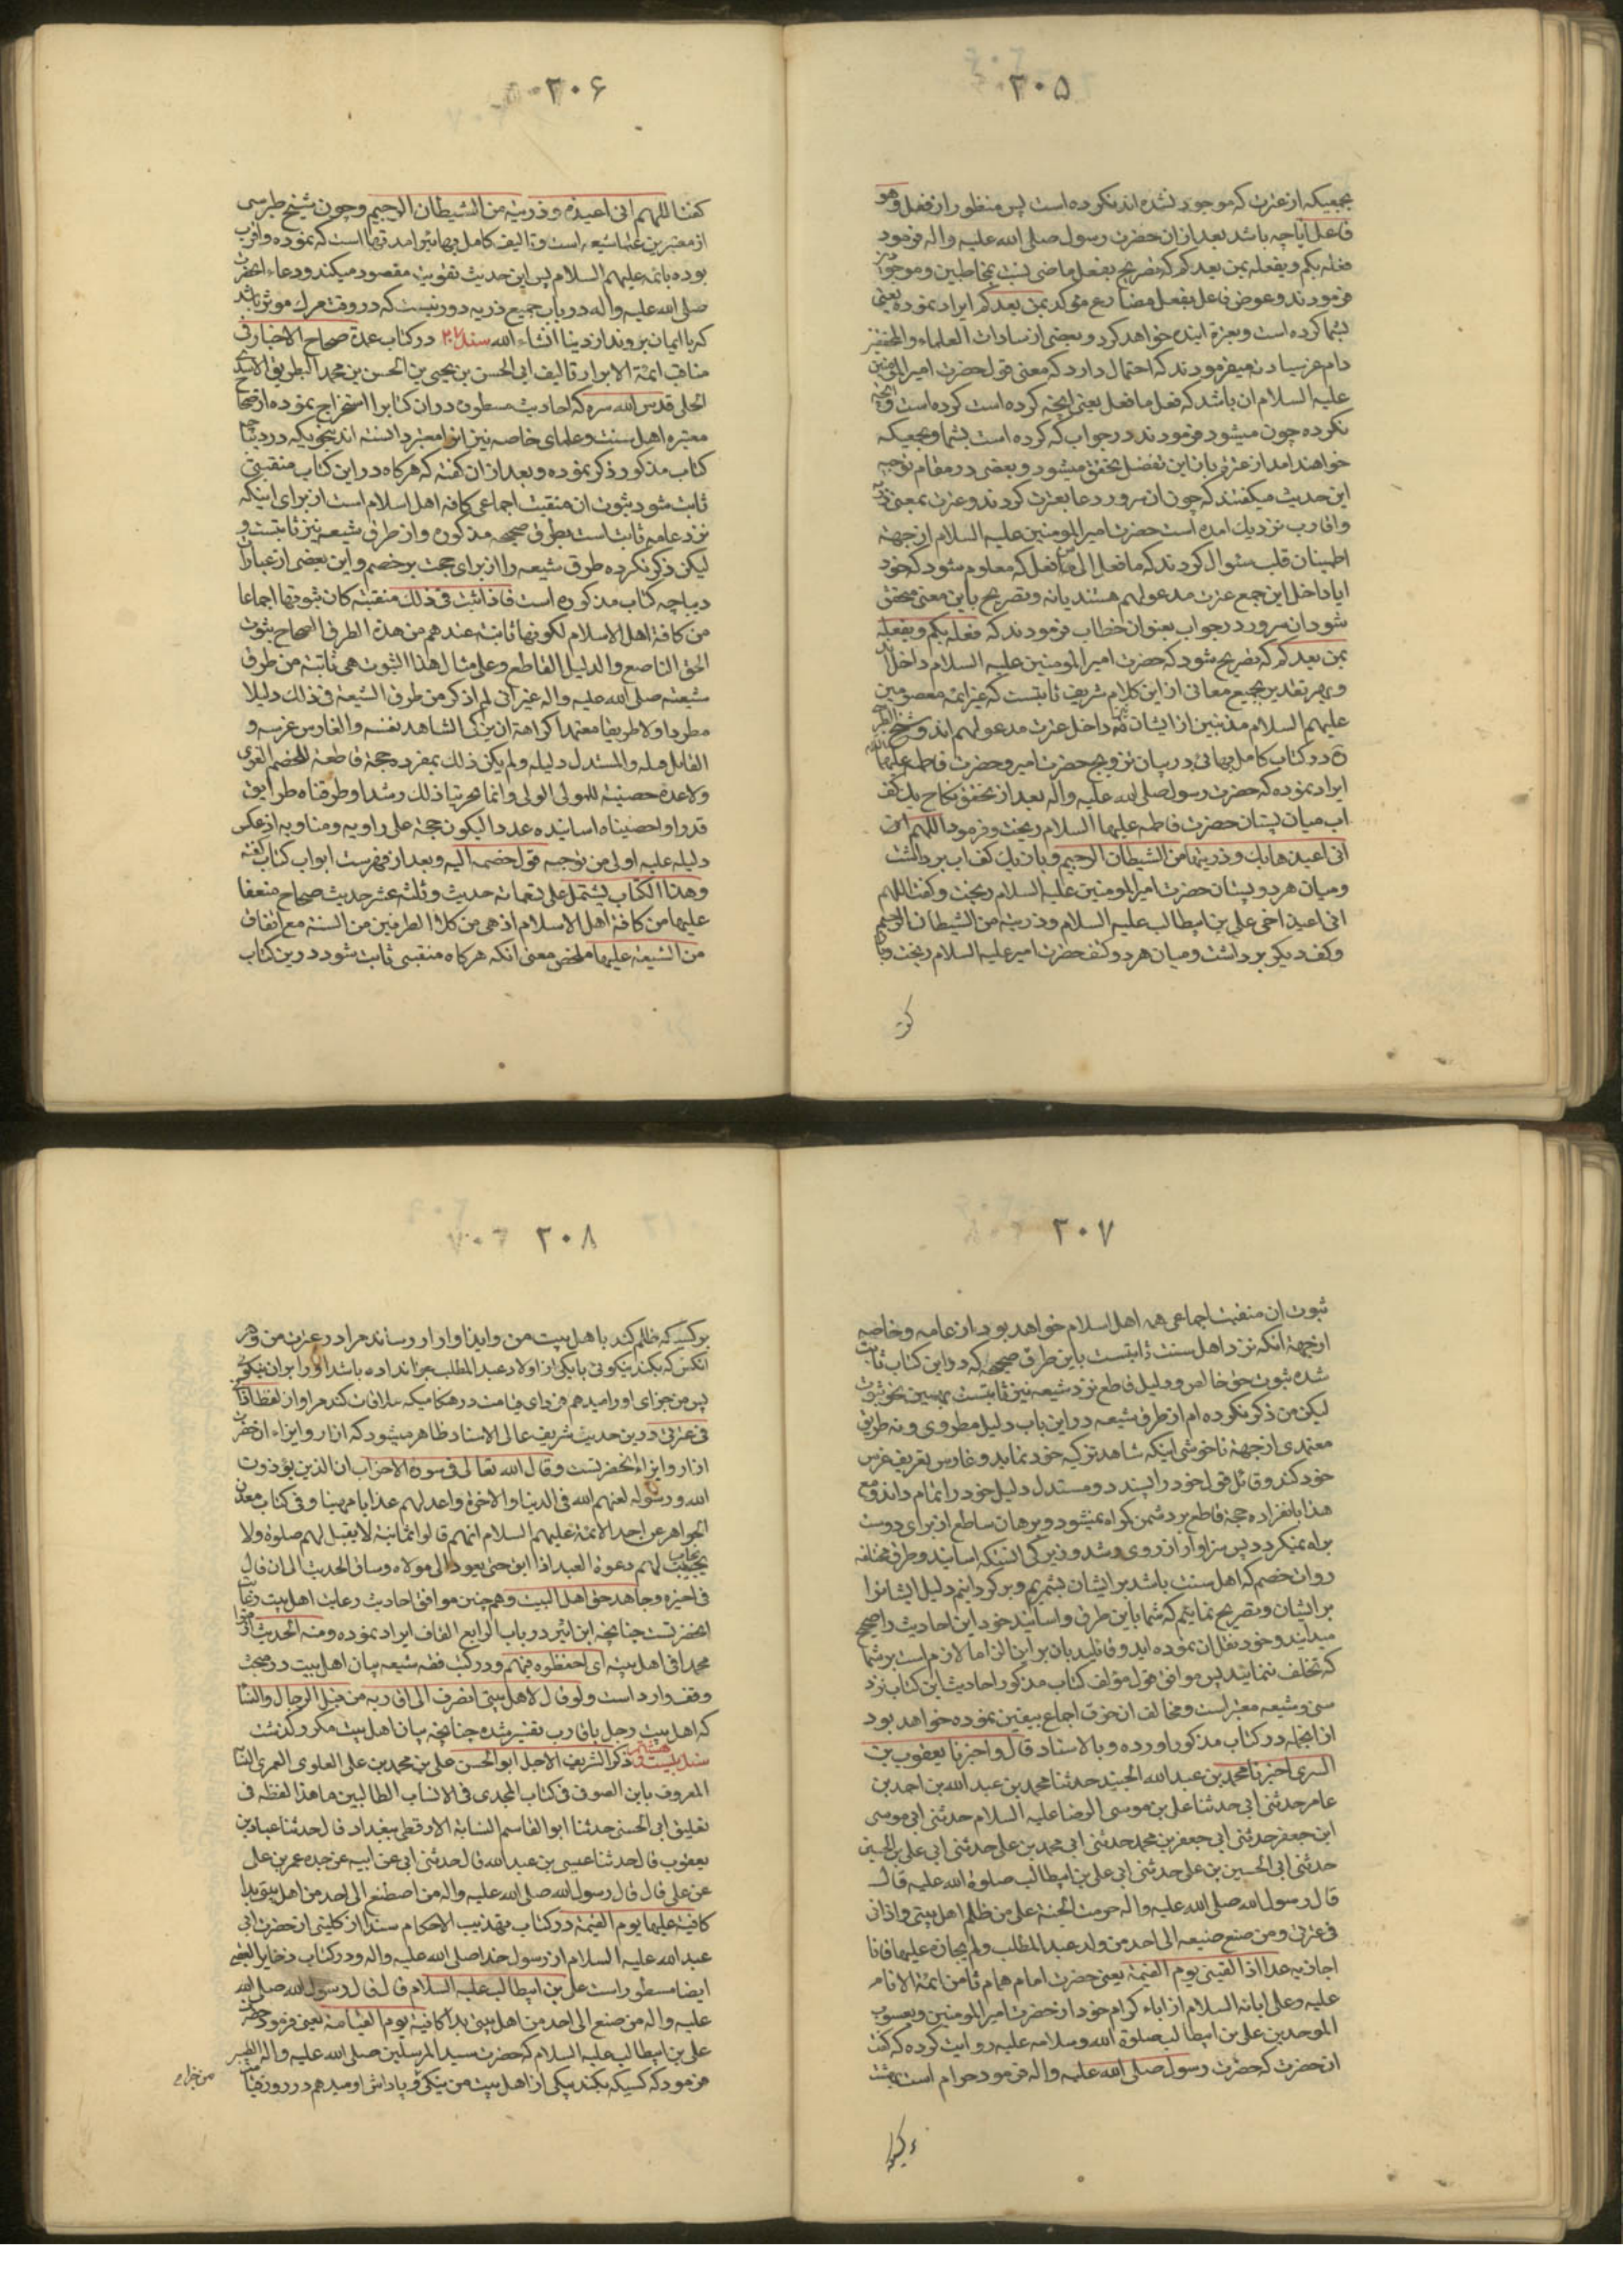 ۲۰۵
بجمعیکه از عترت که موجود نشده اند نکرده است پس منظور از فعل و هو
فاعل ایا چه باشد بعد از ان حضرت رسول صلی الله علیه و اله فرمود
فعله بکم و یفعله بمن بعدکم که تصریح بفعل ماضی نسبت بمخاطبین و موجودین
فرمودند و عوض فاعل بفعل مضارع موکد بمن بعدکم ایراد نموده یعنی
بشما کرده است و بعترة اینده خواهد کرد و بعضی از سادات العلماء و
دام عز سیادته میفرمودند که احتمال دارد که معنی قول حضرت امیر المؤمنین
علیه السلام ان باشد که فعل ما فعل یعنی انچه کرده است کرده است و انچه
نکرده چون میشود فرمودند در جواب که کرده است بشما و بجمعیکه
خواهند امد از عترتم بان این تفضل محقق میشود و بعضی در مقام توجیه
این حدیث میگفتند که چون ان سرور دعا بعترت کردند و عترت بمعنی ذریه
و اقارب نزدیک امده است حضرت امیر المومنین علیه السلام از جهة
اطمینان قلب سئوال کردند که ما فعل الی من فعل که معلوم شود که خود
ایا داخل این جمع عترت مدعو لهم هستند یا نه و تصریح باین معنی محقق
شود ان سرور در جواب بعنوان خطاب فرمودند که فعله بکم و یفعله
بمن بعدکم که تصریح شود که حضرت امیر المومنین علیه السلام داخل اند
و بهر تقدیر بجمیع معانی از این کلام شریف ثابتست که غیر ائمه معصومین
علیهم السلام مذنبین از ایشان هم داخل عترت مدعو لهم اند و شیخ الطبرسی
ره در کتاب کامل بهائی در بیان تزویج حضرت امیر و حضرت فاطمه علیهما السلام
ایراد نموده که حضرت رسول صلی الله علیه و اله بعد از تحقق نکاح یک کف
اب میان پستان حضرت فاطمه علیها السلام ریخت و فرمود اللهم انی
انی اعیذها بک و ذریتها من الشیطان الرجیم و باز یک کف اب برداشت
و میان هر دو پستان حضرت امیر المومنین علیه السلام ریخت و گفت اللهم
انی اعیذ اخی علی بن ابیطالب علیه السلام و ذریته من الشیطان الرجیم
و کف دیگر برداشت و میان هر دو کتف حضرت امیر علیه السلام ریخت و باز
گفت
۲۰۶
گفت اللهم انی اعیذه و ذریته من الشیطان الرجیم و چون شیخ طبرسی
از معتبرین علماء شیعه است و تالیف کامل بهائی بر امد تها است که نموده و اقرب
بوده بائمه علیهم السلام پس این حدیث تقویت مقصود میکند و دعاء انحضرت
صلی الله علیه و اله در باب جمیع ذریه دور نیست که در وقت مرگ موثر باشد
که با ایمان بروند از دینا انشاء الله سند ۲۷ در کتاب عمدة صحاح الاخبار فی
مناقب ائمة الابرار تالیف ابی الحسن بن یحیی بن الحسن بن محمد البطریق الاسدی
الحلی قدس الله سره که احادیث مسطوره دران کتابرا استخراج نموده از صحاح
معتبره اهل سنت و علمای خاصه نیز انرا معتبر دانسته اند بنحویکه در دیباچه
کتاب مذکور ذکر نموده و بعد از ان گفته که هرگاه در این کتاب منقبتی
ثابت شود ثبوت ان منقبت اجماعی کافه اهل اسلام است از برای اینکه
نزد عامه ثابت است بطرق صحیحه مذکوره و از طرق شیعه نیز ثابتست و
لیکن ذکر نکرده طرق شیعه را از برای حجت بر خصم و این بعضی از عبارات
دیباچه کتاب مذکوره است فاذا ثبت فی ذلک منقبة کان ثبوتها اجماعا
من کافة اهل الاسلام لکونها ثابتة عندهم من هذه الطرق الصحاح ثبوت
الحق الناصع و الدلیل القاطع و علی مثال هذا الثبوت هی ثابتة من طرق
شیعته صلی الله علیه و اله غیر انی لم اذکر من طرق الشیعة فی ذلک دلیلا
مطردا و لا طریقا معتمدا کراهة ان یزکی الشاهد نفسه و الغارس غرسه و
القابل قیله و المستدل دلیله و لم یکن ذلک بمفرده حجة قاطعة للخصم القوی
و لا عدة حصنیة للمولی الولی و انما تحرینا ذلک رشدا و طرقناه طرایق
قددا و احصیناه اسانیده عددا لیکون حجة علی راویه و مناویه اذ عکس
دلیله علیه اولی من توجیه قول خصمه الیه و بعد از فهرست ابواب کتاب گفته
و هذا الکتاب یشتمل علی تسعمائة حدیث و ثلثة عشر حدیث صحاح متفقا
علیها من کافة اهل الاسلام اذ هی من کلا الطرفین من السنة مع اتفاق
من الشیعة علیها ملخص معنی انکه هرگاه منقبتی ثابت شود درین کتاب
۲۰۷
ثبوت ان منقبت اجماعی همه اهل اسلام خواهد بود از عامه و خاصه
از جهة انکه نزد اهل سنت ثابتست باین طرق صحیحه که در این کتاب ثابت
شده ثبوت حق خالص و دلیل قاطع نزد شیعه نیز ثابتست بهمین نحو ثبوت
لیکن من ذکر نکرده ام از طرق شیعه در این باب دلیل مطردی و نه طریق
معتمدی از جهة ناخوشی اینکه شاهد تزکیه خود نماید و غارس تعریف غرس
خود کند و قائل قول خود را پسندد و مستدل دلیل خود را تمام داند و مع
هذا بانفراده حجة قاطع بر دشمن گواه نمیشود و برهان ساطع از برای دوست
براه نمیکردد پس سزاوار از روی رشد و زیرکی انستکه اسانید و طرق مختلفه
روات خصم که اهل سنت باشد بر ایشان بشمریم و برگردانیم دلیل ایشانرا
بر ایشان و تصریح نمائیم که شما باین طرق و اسانید خود این احادیث را صحیح
میدانید و خود نقل ان نموده اید و قائلید بان بر این الزاما لازم است بر شما
که تخلف ننمائید پس موافق قول مؤلف کتاب مذکور احادیث این کتاب نزد
سنی و شیعه معتبر است و مخالف ان خرق اجماع بیقین نموده خواهد بود
از انجمله در کتاب مذکور اورده و بالاسناد قال و اخبرنا یعقوب بن
السری اخبرنا محمد بن عبد الله الجنید حدثنا محمد بن عبد الله بن احمد بن
عامر حدثنی ابی حدثنا علی بن موسی الرضا علیه السلام حدثنی ابی موسی
ابن جعفر حدثنی ابی جعفر بن محمد حدثنی ابی محمد بن علی حدثنی ابی علی بن الحسین
حدثنی ابی الحسین بن علی حدثنی ابی علی بن ابیطالب صلوة الله علیه قال
قال رسول الله صلی الله علیه و اله حرمت الجنة علی من ظلم اهل بیتی و اذانی
فی عترتی و من صنع صنیعه الی احد من ولد عبد المطلب و لم یجازه علیها فانا
اجازیه غدا اذا لقینی یوم القیمة یعنی حضرت امام همام ثامن ائمة الانام
علیه و علی ابائه السلام از اباء کرام خود از حضرت امیر المومنین و یعسوب
الموحدین علی بن ابیطالب صلوة الله و سلامه علیه روایت کرده که گفت
انحضرت که حضرت رسول صلی الله علیه و اله فرمود حرام است بهشت
۲۰۸
برکسیکه ظلم کند باهل بیت من و ایذا و ازار رساند مرا در عترت من و هر
انکس که بکند نیکوئی با یکی از اولاد عبد المطلب جزا نداده باشد او را بر ان نیکوئی
پس من جزای او را میدهم فردای قیامت در هنگامیکه ملاقات کند مرا و از لفظ اذانی
فی عترتی درین حدیث شریف عالی الاسناد ظاهر میشود که ازار و ایزاء ان حضرت
ازار و ایزاء انحضرتست و قال الله تعالی فی سورة الاحزاب ان الذین یؤذون
الله و رسوله لعنهم الله فی الدنیا و الاخرة و اعد لهم عذابا مهینا و فی کتاب معدن
الجواهر عن احد الائمة علیهم السلام انهم قالوا ثمانیة لا یقبل لهم صلوة و لا
یجاب لهم دعوة العبد اذا ابق حتی یعود الی مولاه و ساق الحدیث الی ان قال
فی اخیره و جاهد حق اهل البیت و همچنین موافق احادیث رعایت اهل بیت رعایت
انحضرتست چنانچه ابن اثیر در باب الراء مع القاف ایراد نموده و منه الحدیث ارقبوا
محمدا فی اهل بیته ای احفظوه فیهم و در کتب فقه شیعه بیان اهل بیت در مبحث
وقف وارد است و لو قال لاهل بیتی انصرف الی اقاربه من قبل الرجال و النساء
که اهل بیت رجل باقارب تفسیر شده چنانچه بیان اهل بیت مکرر گذشت
سند بیست و هشتم ذکر الشریف الاجل ابو الحسن علی بن محمد بن علی العلوی العمری النسابة
المعروف بابن الصوفی فی کتاب المجدی فی الانساب الطالبین ما هذا لفظه فی
تعلیق ابی الحسنی حدثنا ابو القاسم النسابة الارقطی ببغداد قال حدثنا عباد بن
یعقوب قال حدثنا عیسی بن عبد الله قال حدثنی ابی عن ابیه عن جده عمر بن علی
عن علی قال قال رسول الله صلی الله علیه و اله من اصطنع الی احد من اهل بیتی یدا
کافیته علیها یوم القیمة در کتاب تهذیب الاحکام سندا از کلینی از حضرت ابی
عبد الله علیه السلام از رسول خدا صلی الله علیه و اله و در کتاب ذخایر العقبی
ایضا مسطور است علی بن ابیطالب علیه السلام قال قال رسول الله صلی الله
علیه و اله من صنع الی احد من اهل بیتی یدا کافیته یوم القیامة یعنی فرمود حضرت
علی بن ابیطالب علیه السلام که حضرت سید المرسلین صلی الله علیه و اله
فرمود که کسیکه بکند بیکی از اهل بیت من نیکی و پاداش او میدهم در روز قیامت